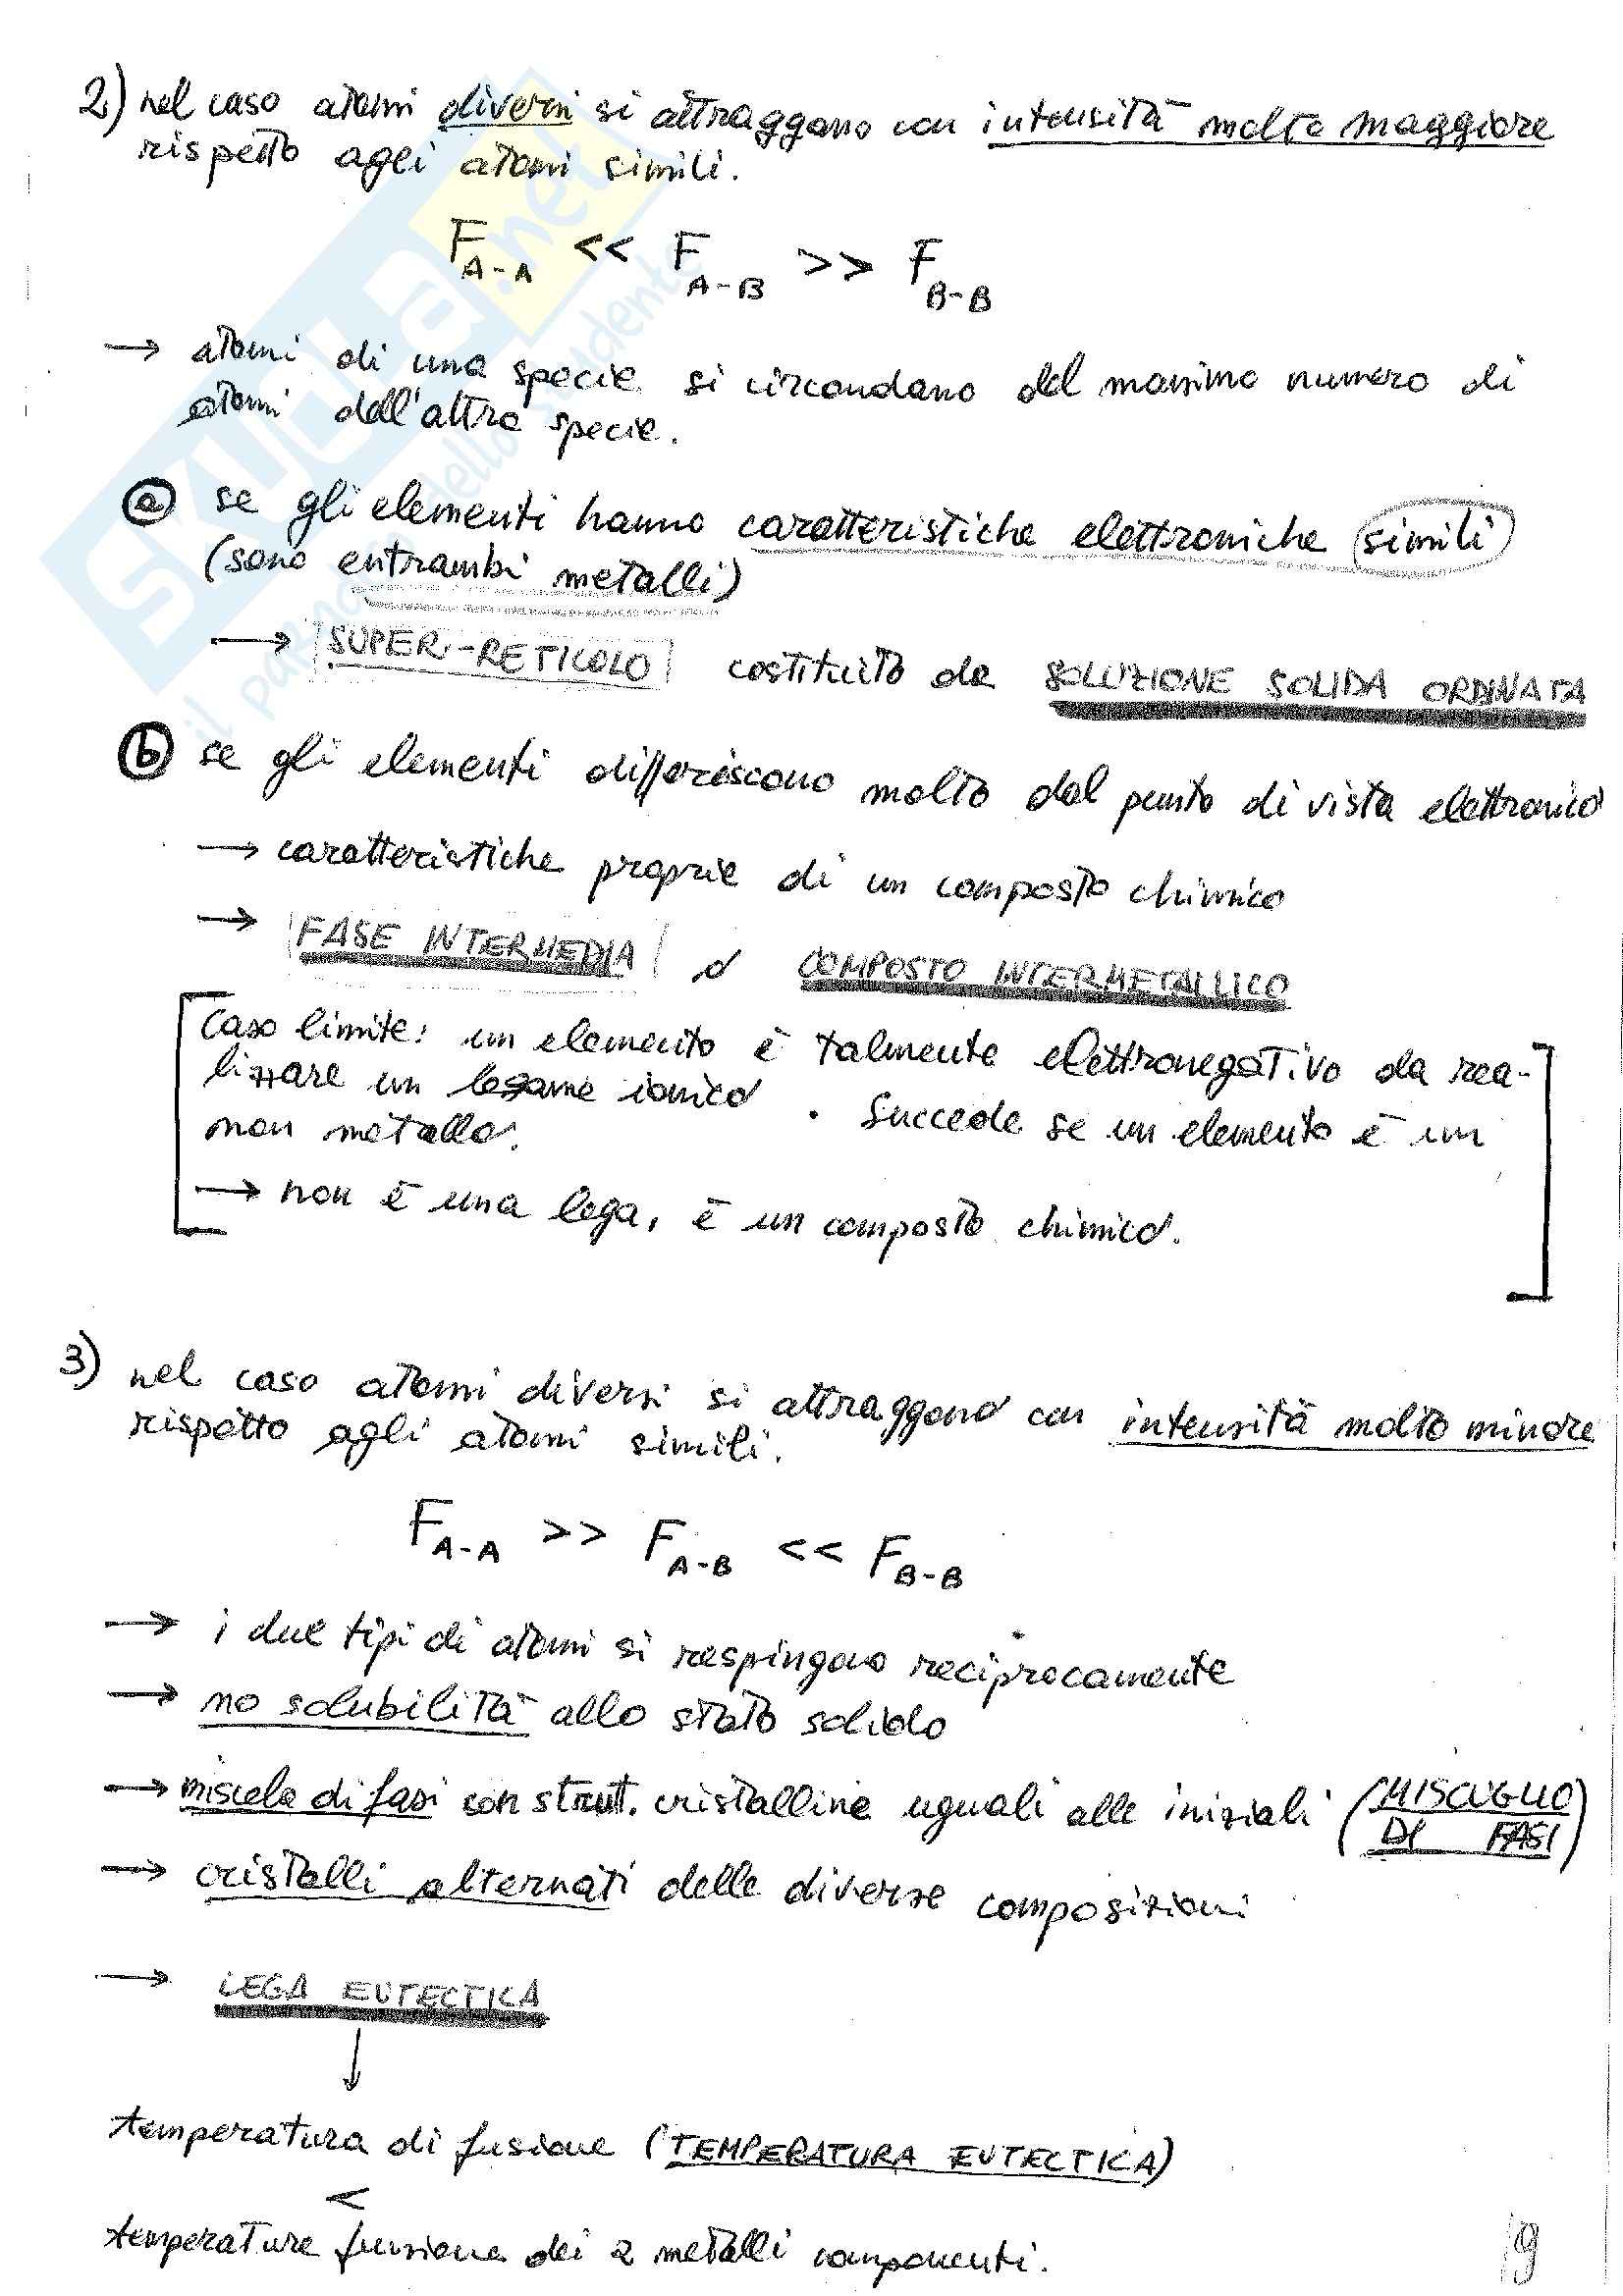 2) nel caso atomi diversi si attraggano con intensità molto maggiore
rispetto agli atomi simili.
F A-A << F A-B >> F B-B
→ atomi di una specie si circondano del massimo numero di
atomi dell'altra specie.
ⓐ se gli elementi hanno caratteristiche elettroniche simili
(sono entrambi metalli)
→ SUPER-RETICOLO costituito da SOLUZIONE SOLIDA ORDINATA
ⓑ se gli elementi differiscono molto dal punto di vista elettronico
→ caratteristiche proprie di un composto chimico
→ FASE INTERMEDIA o COMPOSTO INTERMETALLICO
Caso limite: un elemento è talmente elettronegativo da rea-
lizzare un legame ionico. Succede se un elemento è un
non metallo.
→ non è una lega, è un composto chimico.
3) nel caso atomi diversi si attraggono con intensità molto minore
rispetto agli atomi simili.
F A-A >> F A-B << F B-B
→ i due tipi di atomi si respingono reciprocamente
→ no solubilità allo stato solido
→ miscela di fasi con strut. cristalline uguali alle iniziali (MISCUGLIO
DI FASI)
→ cristalli alternati delle diverse composizioni
→ LEGA EUTECTICA
↓
temperatura di fusione (TEMPERATURA EUTECTICA)
<
temperature fusione dei 2 metalli componenti.
9
SKUOLA.net
il paradiso dello studente